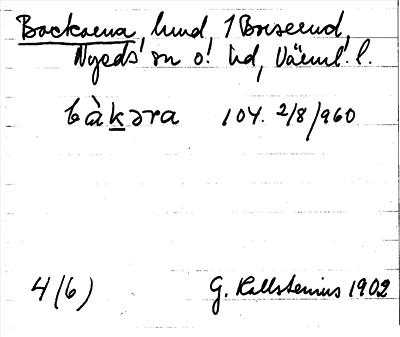 Backarna, lund, 1 Borserud,
Nyeds sn o. hd, Värml. l.
bàkəra 104. 2/8/960
4(6) G. Kallstenius 1902